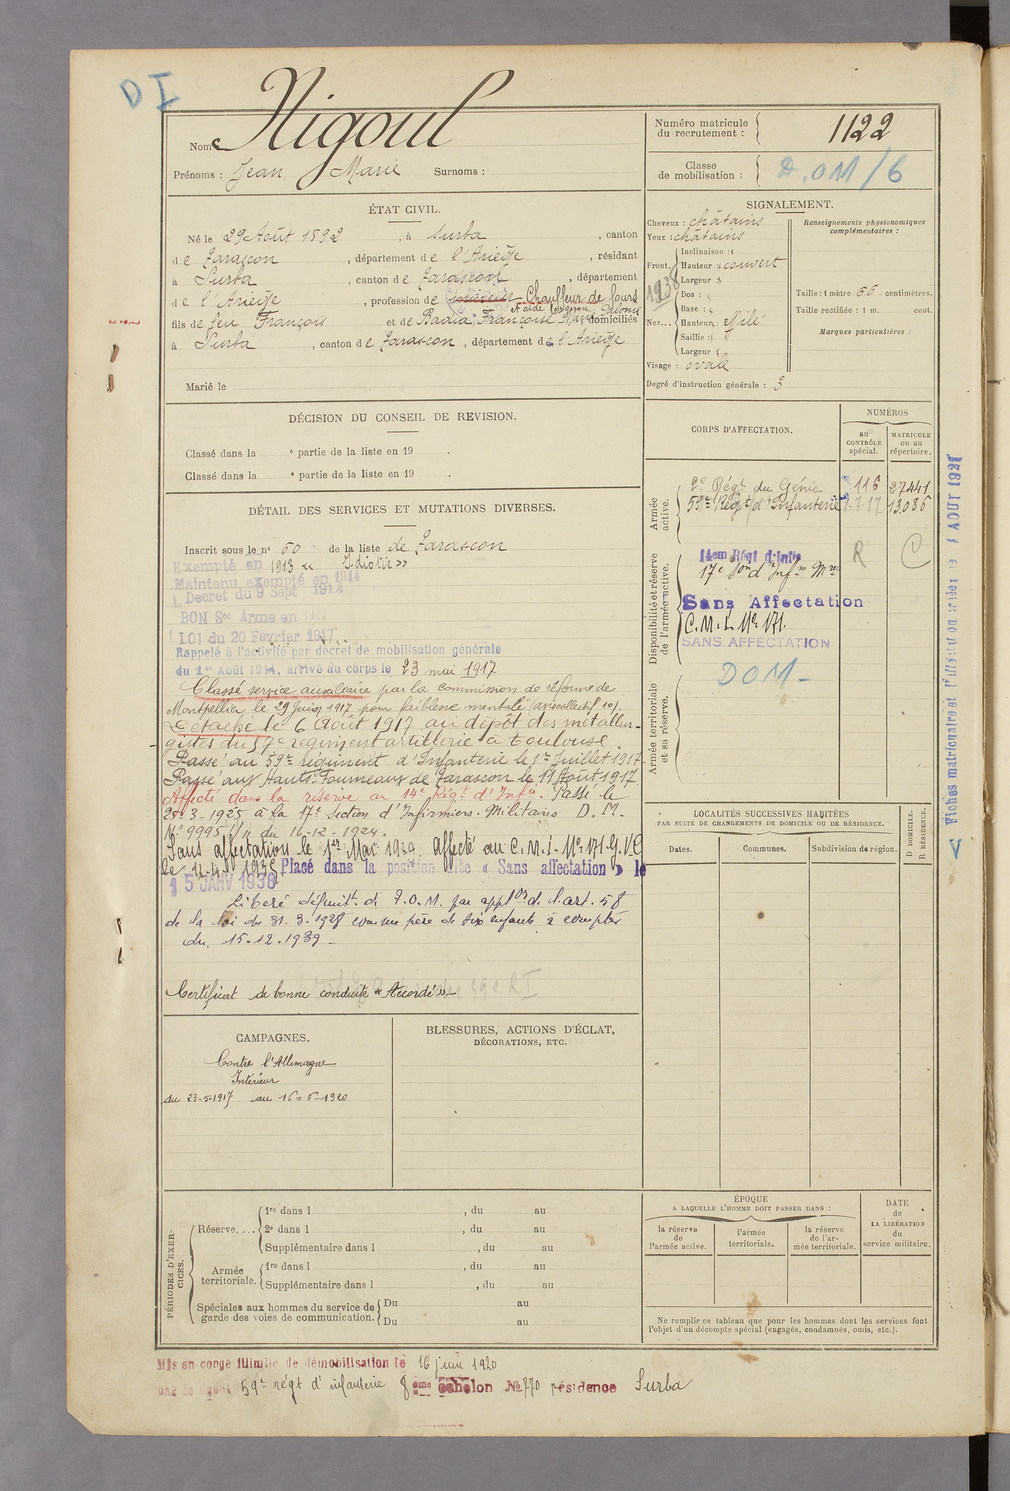 D I
Nom Nigoul
Prénoms : Jean, Marie Surnoms :
Numéro matricule du recrutement : 1122
Classe de mobilisation : D.OM/6
ÉTAT CIVIL.
Né le 29 Août 1892, à Surba, canton
de Tarascon, département de l'Ariège, résidant
à Surba, canton de Tarascon, département
de l'Ariège, profession de Chauffeur de fours
fils de feu François et de Badia, Françoise domiciliés
à Surba, canton de Tarascon, département de l'Ariège
Marié le
SIGNALEMENT.
Cheveux : châtains
Yeux : châtains
Front. Inclinaison :
Hauteur : couvert
Largeur :
1938
Nez... Dos :
Base :
Hauteur : effilé
Saillie :
Largeur :
Visage : ovale
Degré d'instruction générale : 3
Renseignements physionomiques complémentaires :
Taille : 1 mètre 66 centimètres.
Taille rectifiée : 1 m. cent.
Marques particulières :
DÉCISION DU CONSEIL DE REVISION.
Classé dans la e partie de la liste en 19 .
Classé dans la e partie de la liste en 19 .
DÉTAIL DES SERVICES ET MUTATIONS DIVERSES.
Inscrit sous le no 60 de la liste de Tarascon
Exempté en 1913 « Idiotie »
Maintenu exempté en 1914
Decret du 9 Sept 1914
BON Sce Arme en
LOI du 20 Fevrier 1917
Rappelé à l'activité par décret de mobilisation générale
du 1er Août 1914, arrivé au corps le 23 mai 1917
Classé service auxiliaire par la commission de réforme de
Montpellier le 29 Juin 1917 pour faiblesse mentale
Détaché le 6 Août 1917 au dépôt des métallur-
gistes du 57e régiment artillerie à Toulouse.
Passé au 59e régiment d'Infanterie le 1er Juillet 1917
Passé aux Hauts-Fourneaux de Tarascon le 11 Août 1917
Affecté dans la réserve au 14e Régt d'Infie. Passé le
25-3-1925 à la 17e Section d'Infirmiers Militaires D. M.
No 9995 du 16-12-1924.
Sans affectation le 1er Mai 1929 affecté au C.M.I. No 171 G.V.C
le Placé dans la position dite « Sans affectation » le
15 JANV 1938
Libéré définitt d. T.O.M. par applon d. l.art. 58
de la loi du 31.3.1928 comme père de six enfants à compter
du 15.12.1939 -
Certificat de bonne conduite « Accordé »
CORPS D'AFFECTATION.
NUMÉROS
au CONTRÔLE spécial.
MATRICULE ou au répertoire.
Armée active.
2e Régt du Génie 116 27441
59e Régt d'Infanterie 13.086
Disponibilité et réserve de l'armée active.
14em Régt d'Infie R C
17e Son d'Infrs Mres
Sans Affectation
C.M.I. No 171.
SANS AFFECTATION
Armée territoriale et sa réserve.
DOM -
Fiches matriculaire et
LOCALITÉS SUCCESSIVES HABITÉES
PAR SUITE DE CHANGEMENTS DE DOMICILE OU DE RÉSIDENCE.
Dates. Communes. Subdivision de région.
D DOMICILE.
R RÉSIDENCE.
CAMPAGNES.
Contre l'Allemagne
Intérieur
du 23-5-1917 au 16-6-1920
BLESSURES, ACTIONS D'ÉCLAT,
DÉCORATIONS, ETC.
PÉRIODES D'EXERCICES.
Réserve.... 1re dans l , du au
2e dans l , du au
Supplémentaire dans l , du au
Armée territoriale. 1re dans l , du au
Supplémentaire dans l , du au
Spéciales aux hommes du service de garde des voies de communication. Du au
Du au
ÉPOQUE
A LAQUELLE L'HOMME DOIT PASSER DANS :
la réserve de l'armée active.
l'armée territoriale.
la réserve de l'armée territoriale.
DATE de LA LIBÉRATION du service militaire.
Ne remplir ce tableau que pour les hommes dont les services font
l'objet d'un décompte spécial (engagés, condamnés, omis, etc.).
Mis en congé illimité de démobilisation le 16 juin 1920
59e régt d'infanterie 8eme échelon No 770 résidence Surba